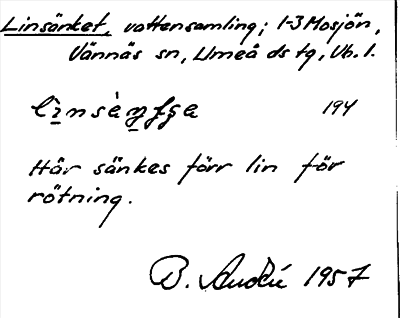 Linsänket, vattensamling; 1-3 Mosjön,
Vännäs sn, Umeå ds tg, Vb. l.
194
Här sänkes förr lin för
rötning.
B. 1957